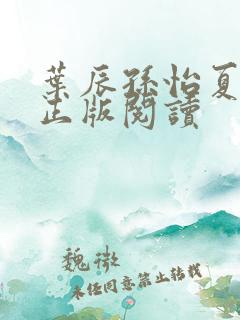 葉辰孫怡夏
正版閱讀
魏徵
未经同意禁止转载